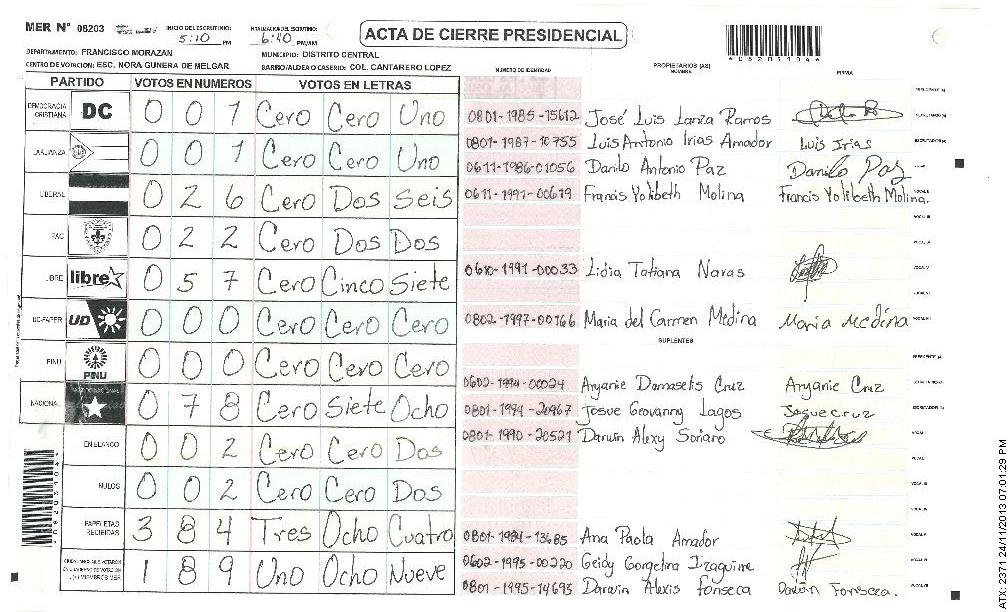 MER N° 08203 INICIO DEL ESCRUTINIO: 5:10 PM FINALIZACION DEL ESCRUTINIO: 6:40 PM/AM
ACTA DE CIERRE PRESIDENCIAL
DEPARTAMENTO: FRANCISCO MORAZAN MUNICIPIO: DISTRITO CENTRAL
CENTRO DE VOTACION: ESC. NORA GUNERA DE MELGAR BARRIO/ALDEA O CASERIO: COL. CANTARERO LOPEZ
PARTIDO VOTOS EN NUMEROS VOTOS EN LETRAS
NUMERO DE IDENTIDAD PROPIETARIOS (AS) NOMBRE FIRMA
DEMOCRACIA CRISTIANA DC 0 0 1 Cero Cero Uno
LA ALIANZA 0 0 1 Cero Cero Uno
LIBERAL 0 2 6 Cero Dos Seis
PAC 0 2 2 Cero Dos Dos
LIBRE libre 0 5 7 Cero Cinco Siete
UD-FAPER UD 0 0 0 Cero Cero Cero
PINU PINU 0 0 0 Cero Cero Cero
NACIONAL 0 7 8 Cero Siete Ocho
EN BLANCO 0 0 2 Cero Cero Dos
NULOS 0 0 2 Cero Cero Dos
PAPELETAS RECIBIDAS 3 8 4 Tres Ocho Cuatro
1 8 9 Uno Ocho Nueve
0801-1985-15612 José Luis Lanza Ramos
0801-1987-10755 Luis Antonio Irias Amador Luis Irias
0611-1986-01056 Danilo Antonio Paz Danilo Paz
0611-1991-00619 Francis Yolibeth Molina Francis Yolibeth Molina.
0610-1991-00033 Lidia Tatiana Navas
0802-1997-00166 Maria del Carmen Medina Maria Medina
SUPLENTES
0602-1994-00024 Aryanie Damaselis Cruz Aryanie Cruz
0801-1994-20967 Josue Geovanny Lagos
0801-1990-20521 Darwin Alexy Soriano
0801-1984-13685 Ana Paola Amador
0602-1995-00220 Geidy Gorgelina Izaguirre
0801-1995-14693 Darwin Alexis Fonseca
ATX 2371 24/11/2013 07:01:29 PM